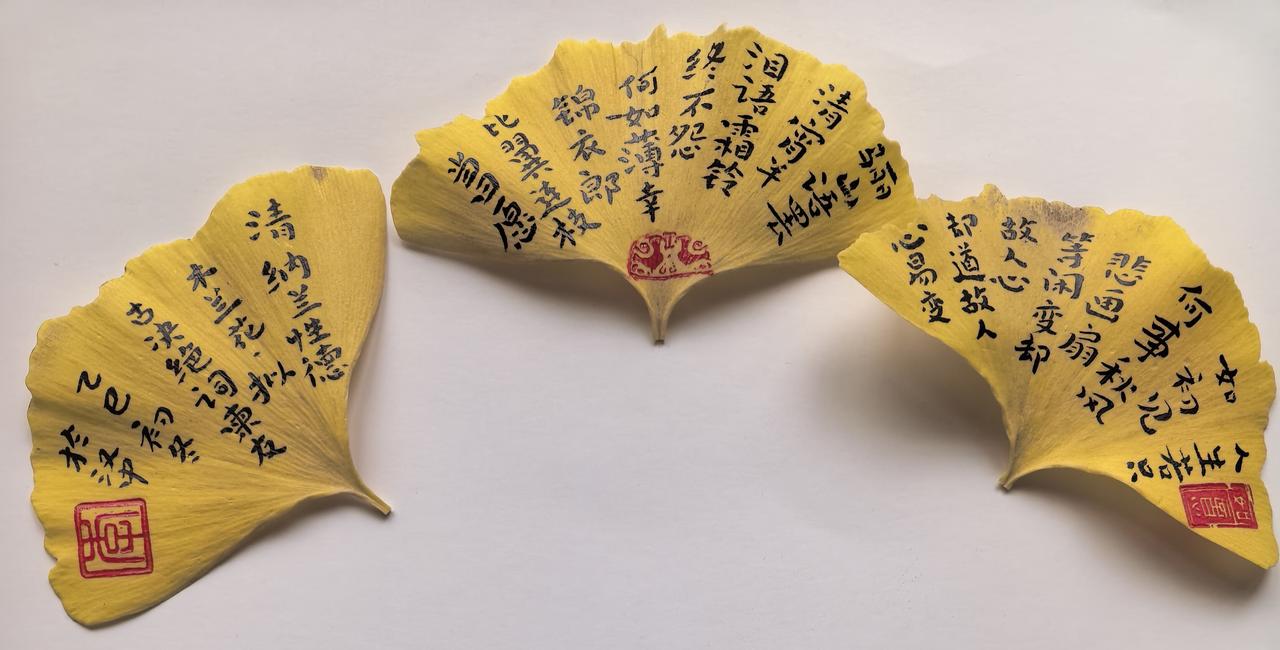 人生若只
如初见
何事秋风
悲画扇
等闲变却
故人心
却道故人
心易变
骊山语罢
清宵半
泪语霜铃
终不怨
何如薄幸
锦衣郎
比翼连枝
当日愿
清 纳兰性德
木兰花·拟
古决绝词柬友
乙巳初冬
於